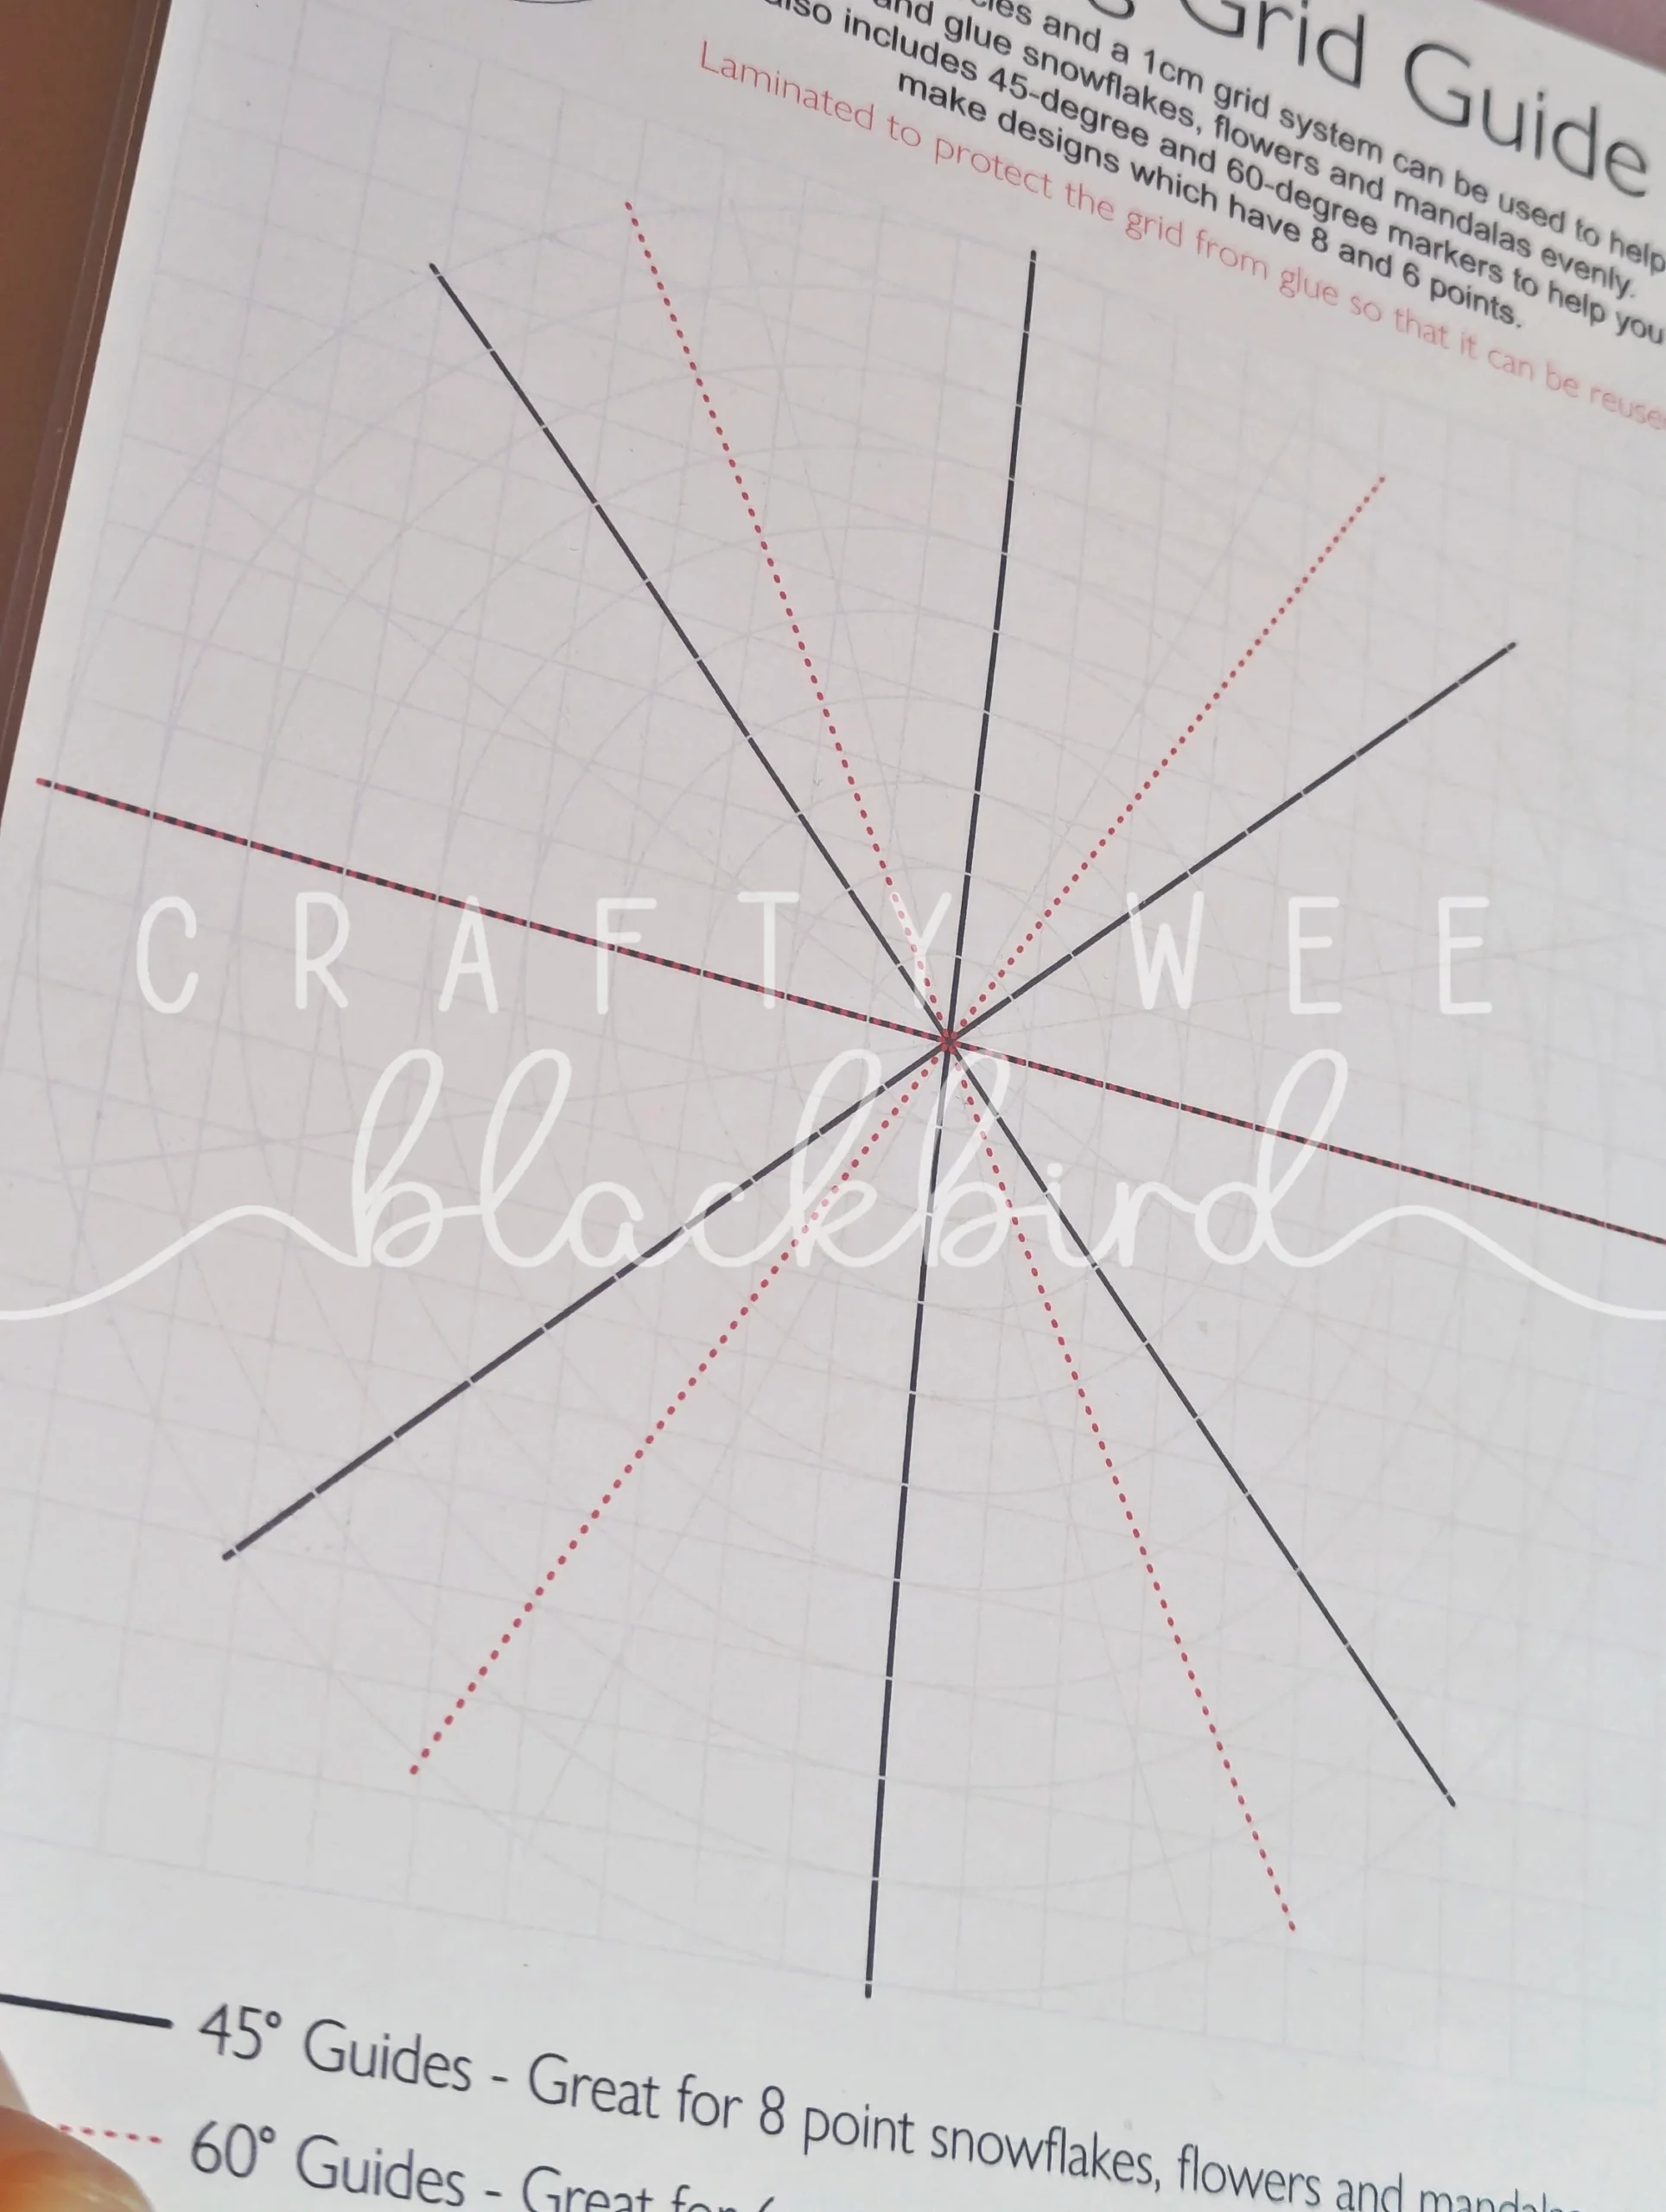 Grid Guide
and a 1cm grid system can be used to help
and glue snowflakes, flowers and mandalas evenly.
also includes 45-degree and 60-degree markers to help you
make designs which have 8 and 6 points.
Laminated to protect the grid from glue so that it can be reused
CRAFTY WEE
blackbird
45° Guides - Great for 8 point snowflakes, flowers and mandalas
60° Guides - Great for